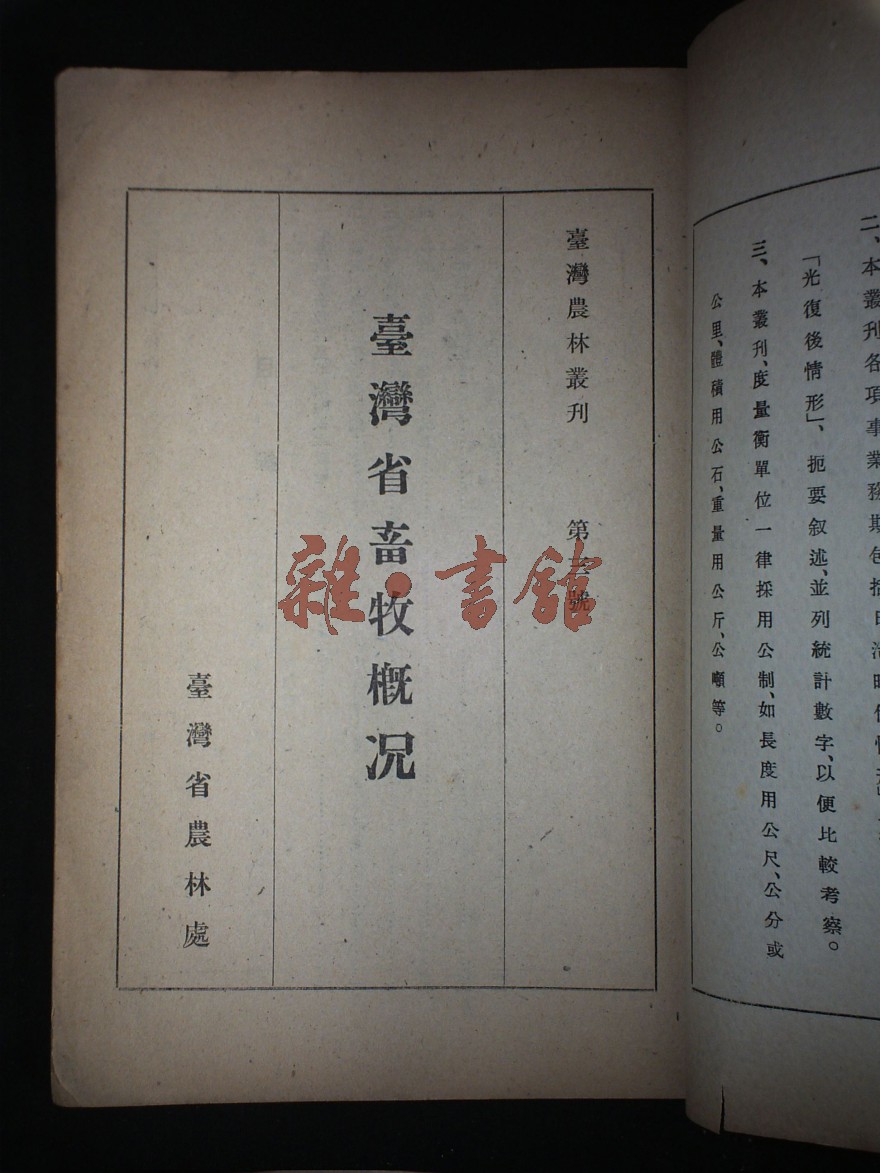 二、本叢刊各項事業務期包括日
「光復後情形」、扼要叙述、並列統計數字、以便比較考察。
三、本叢刊、度量衡單位一律採用公制、如長度用公尺、公分或
公里、體積用公石、重量用公斤、公噸等。
臺灣農林叢刊 第 號
臺灣省畜牧概况
臺灣省農林處
雜·書館